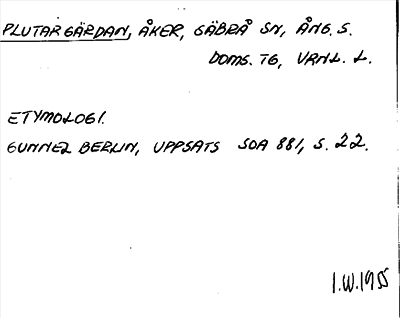 PLUTARGÄRDAN, ÅKER, GÄBRÅ SN, ÅNG. S.
DOMS. TG, VRNL. L.
ETYMOLOGI.
GUNNEL BERLIN, UPPSATS SOA 881, S. 22.
I.W.1955